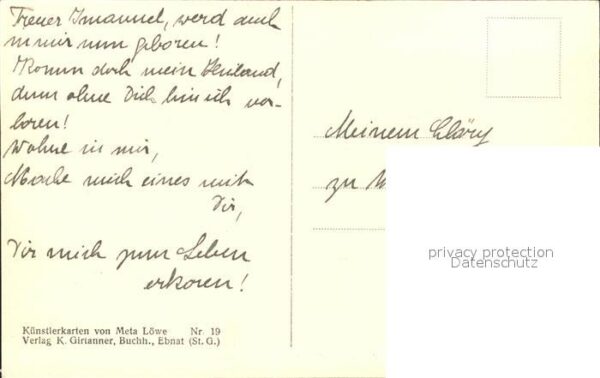 Treuer Immanuel, werd auch
in mir nun geboren!
Komm doch mein Heiland,
denn ohne Dich bin ich ver-
loren!
Wohne in mir,
Mache mich eines mit
Dir,
Dir mich zum Leben
erkoren!
Künstlerkarten von Meta Löwe Nr. 19
Verlag K. Girtanner, Buchh., Ebnat (St. G.)
Meinem Cläry
zu
privacy protection
Datenschutz